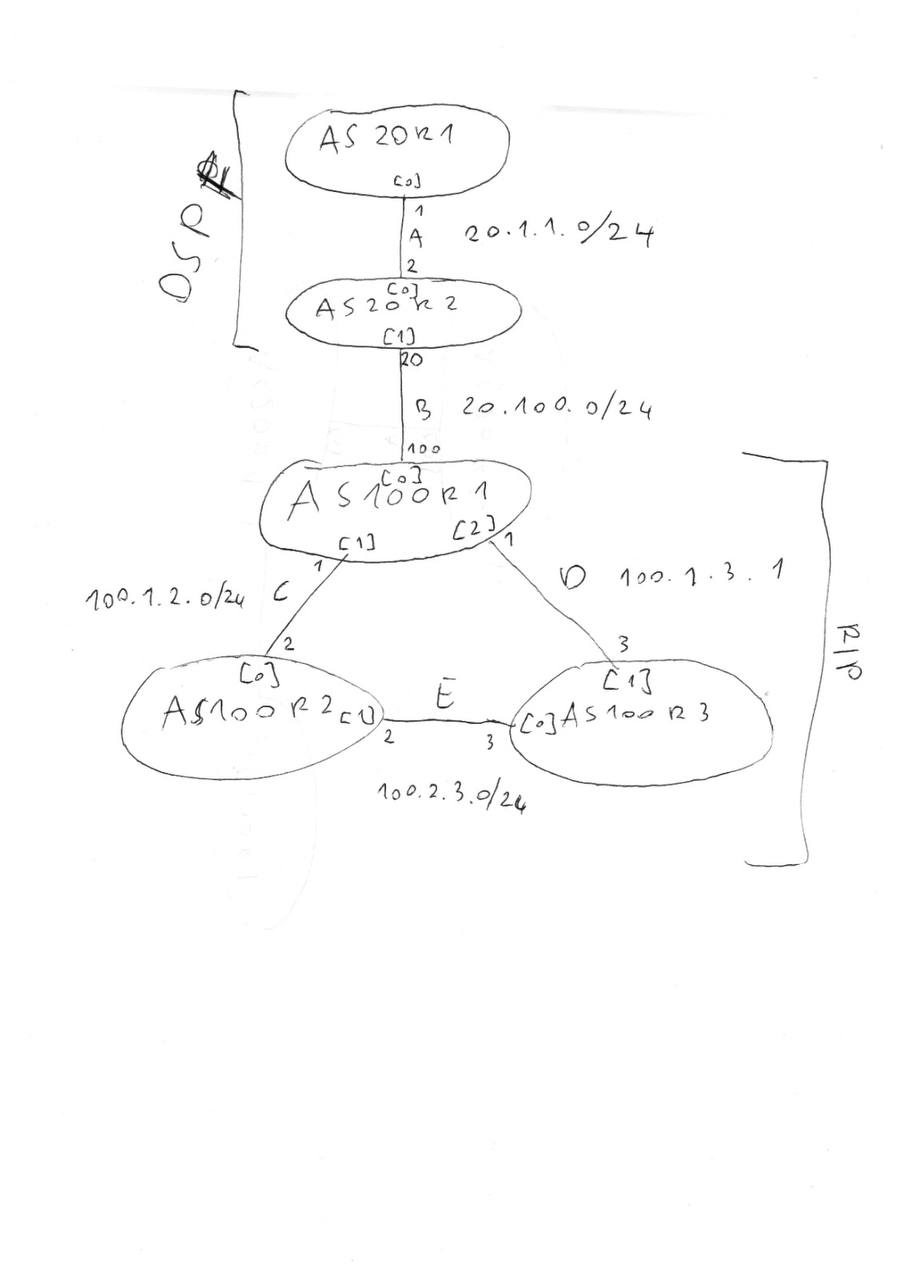 AS 20R1
[0]
1
A 20.1.1.0/24
2
DSP
[0]
AS20R2
[1]
20
B 20.100.0/24
100
[0]
AS100R1
[1] [2]
1 1
100.1.2.0/24 C
D 100.1.3.1
2 3
[0] [1]
AS100R2 [1]
E
[0] AS100R3
2 3
100.2.3.0/24
RIP